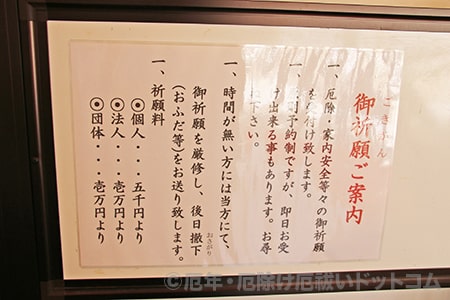 ごきがん
御祈願ご案内
一、厄除・家内安全等々の御祈願
を受付け致します。
一、予約制ですが、即日お受
け出来る事もあります。お尋
ね下さい。
一、時間が無い方には当方にて、
御祈願を厳修し、後日撤下
おさがり
(おふだ等)をお送り致します。
一、祈願料
◎個人・・・五千円より
◎法人・・・壱万円より
◎団体・・・壱万円より
©厄年・厄除け厄祓いドットコム